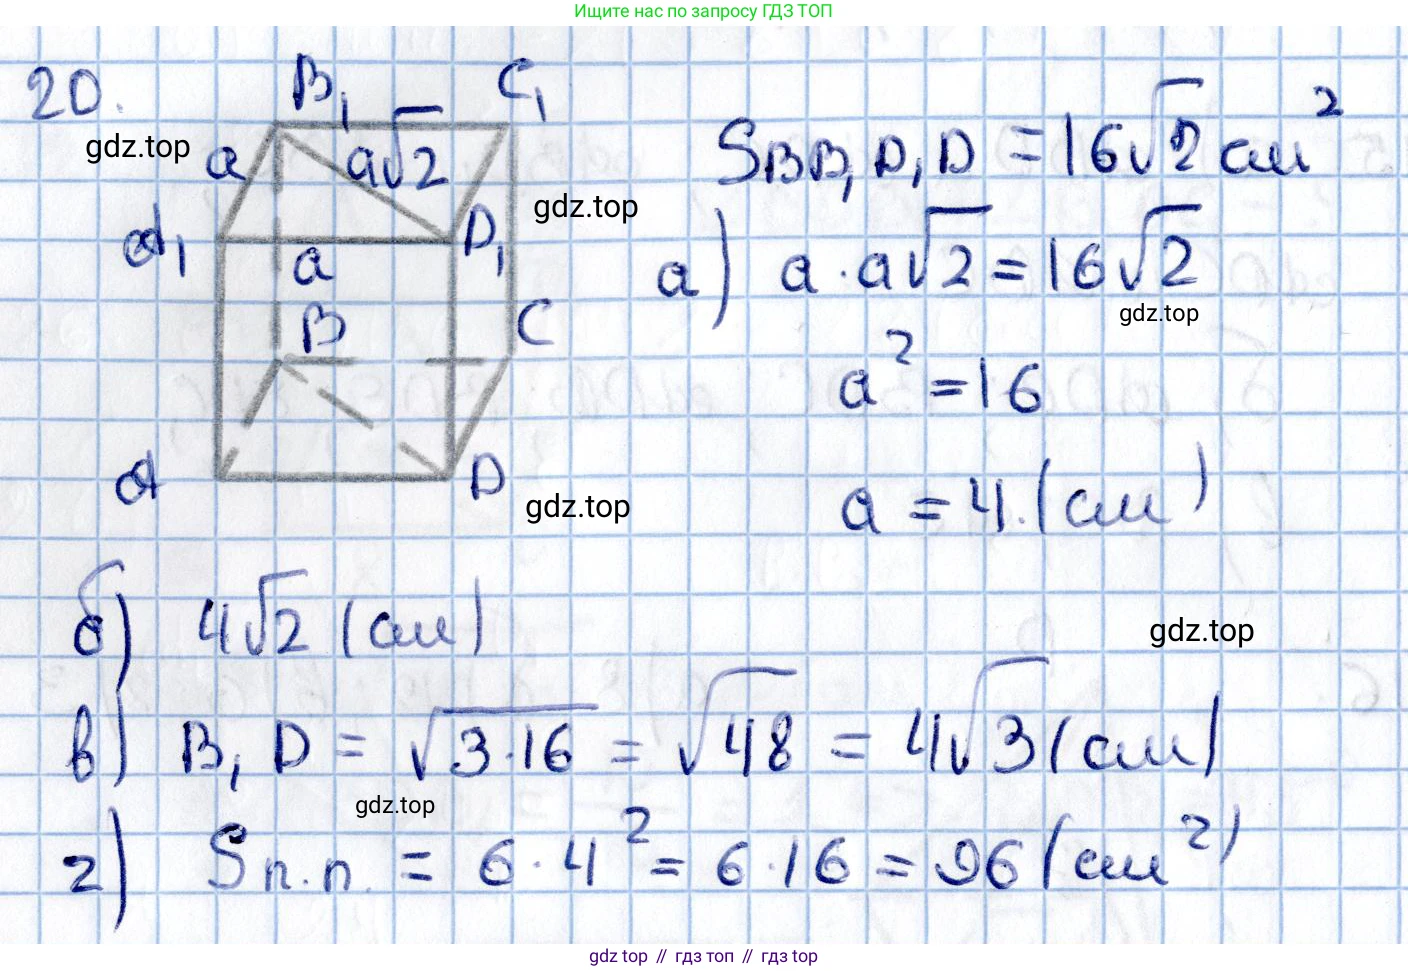 Ищите нас по запросу ГДЗ ТОП
20.
B₁ C₁
gdz.top
a a√2
A₁ a D₁
gdz.top
B C
A D
gdz.top
S_BB₁D₁D = 16√2 см²
а) a · a√2 = 16√2
gdz.top
a² = 16
a = 4. (см)
б) 4√2 (см)
gdz.top
в) B₁D = √3·16 = √48 = 4√3 (см)
gdz.top
г) Sп.п. = 6 · 4² = 6 · 16 = 96 (см²)
gdz top // гдз топ // gdz top